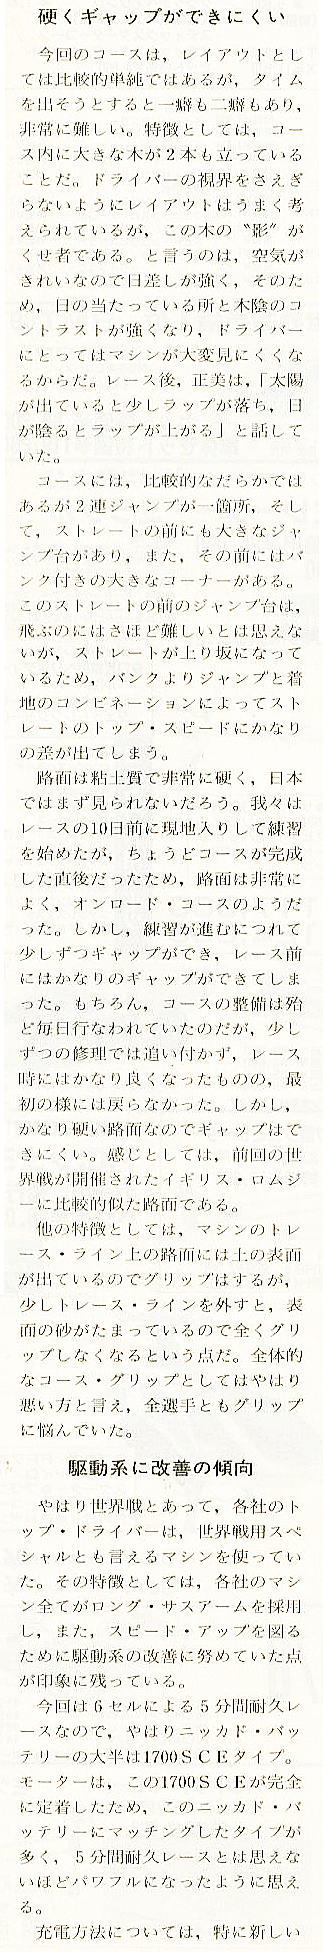 硬くギャップができにくい
今回のコースは，レイアウトとし
ては比較的単純ではあるが，タイム
を出そうとすると一癖も二癖もあり，
非常に難しい。特徴としては，コー
ス内に大きな木が2本も立っている
ことだ。ドライバーの視界をさえぎ
らないようにレイアウトはうまく考
えられているが，この木の〝影〟が
くせ者である。と言うのは，空気が
きれいなので日差しが強く，そのた
め，日の当たっている所と木陰のコ
ントラストが強くなり，ドライバー
にとってはマシンが大変見にくくな
るからだ。レース後，正美は，「太陽
が出ていると少しラップが落ち，日
が陰るとラップが上がる」と話して
いた。
コースには，比較的なだらかでは
あるが2連ジャンプが一箇所，そし
て，ストレートの前にも大きなジャ
ンプ台があり，また，その前にはバ
ンク付きの大きなコーナーがある。
このストレートの前のジャンプ台は，
飛ぶのにはさほど難しいとは思えな
いが，ストレートが上り坂になって
いるため，バンクよりジャンプと着
地のコンビネーションによってスト
レートのトップ・スピードにかなり
の差が出てしまう。
路面は粘土質で非常に硬く，日本
ではまず見られないだろう。我々は
レースの10日前に現地入りして練習
を始めたが，ちょうどコースが完成
した直後だったため，路面は非常に
よく，オンロード・コースのようだ
った。しかし，練習が進むにつれて
少しずつギャップができ，レース前
にはかなりのギャップができてしま
った。もちろん，コースの整備は殆
ど毎日行なわれていたのだが，少し
ずつの修理では追い付かず，レース
時にはかなり良くなったものの，最
初の様には戻らなかった。しかし，
かなり硬い路面なのでギャップはで
きにくい。感じとしては，前回の世
界戦が開催されたイギリス・ロムジ
ーに比較的似た路面である。
他の特徴としては，マシンのトレ
ース・ライン上の路面には土の表面
が出ているのでグリップはするが，
少しトレース・ラインを外すと，表
面の砂がたまっているので全くグリ
ップしなくなるという点だ。全体的
なコース・グリップとしてはやはり
悪い方と言え，全選手ともグリップ
に悩んでいた。
駆動系に改善の傾向
やはり世界戦とあって，各社のト
ップ・ドライバーは，世界戦用スペ
シャルとも言えるマシンを使ってい
た。その特徴としては，各社のマシ
ン全てがロング・サスアームを採用
し，また，スピード・アップを図る
ために駆動系の改善に努めていた点
が印象に残っている。
今回は6セルによる5分間耐久レ
ースなので，やはりニッカド・バッ
テリーの大半は1700ＳＣＥタイプ。
モーターは，この1700ＳＣＥが完全
に定着したため，このニッカド・バ
ッテリーにマッチングしたタイプが
多く，5分間耐久レースとは思えな
いほどパワフルになったように思え
る。
充電方法については，特に新しい